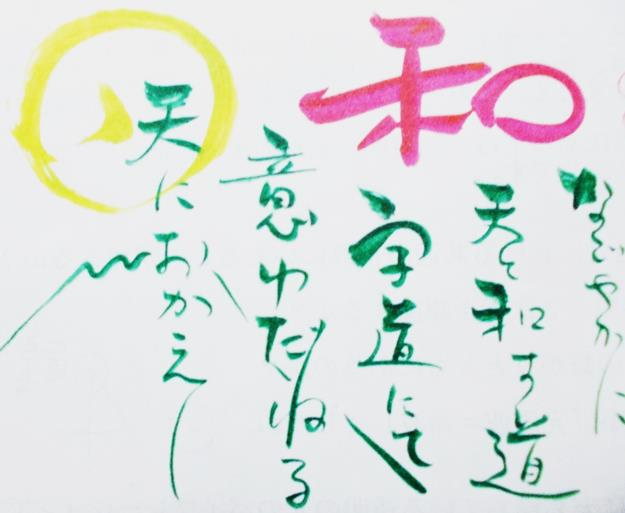 和
なごやかに
天と和す道
字道にて
意ゆだねる
天におかえし